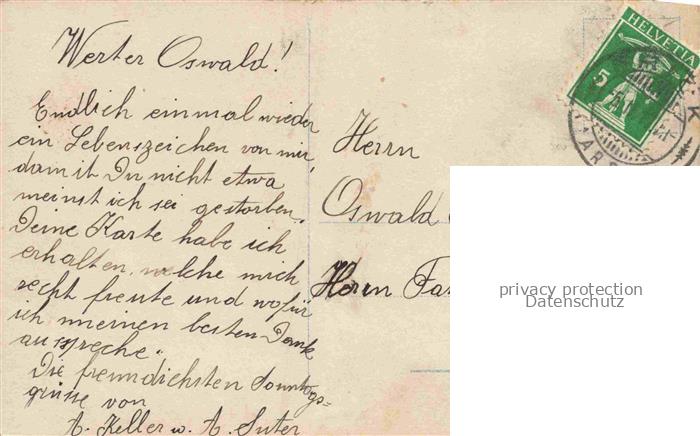 Werter Oswald!
Endlich einmal wieder
ein Lebenszeichen von mir,
damit Du nicht etwa
meinst ich sei gestorben.
Deine Karte habe ich
erhalten, welche mich
recht freute und wofür
ich meinen besten Dank
ausspreche.
Die freundlichsten Sonntags=
grüsse von
A. Keller u. A. Suter
Herrn
Oswald
Herrn
HELVETIA
5
privacy protection
Datenschutz